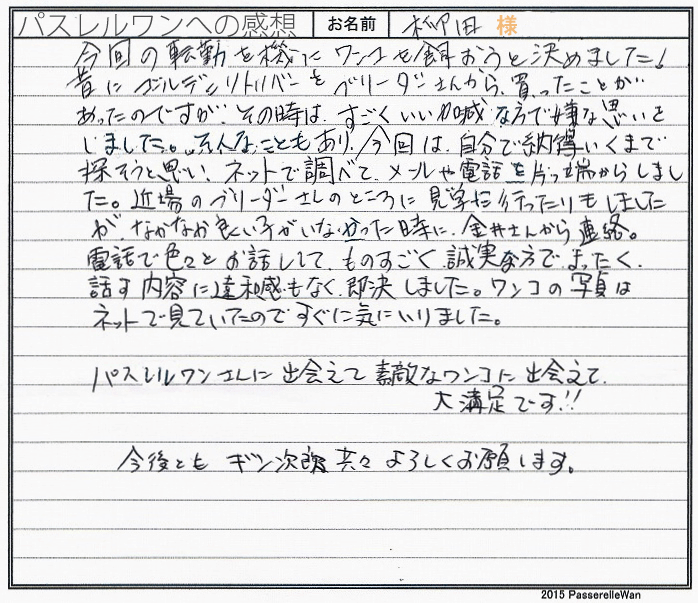 パスレルワンへの感想 お名前 柳田 様
今回の転勤を機にワンコを飼おうと決めました!
昔にゴールデンリトリバーをブリーダーさんから、買ったことが
あったのですが、その時は、すごくいい加減な方で嫌な思いを
しました。そんなこともあり、今回は、自分で納得いくまで
探そうと思い、ネットで調べて、メールや電話を片っ端からしまし
た。近場のブリーダーさんのところに見学に行ったりもしました
が、なかなか良い子がいなかった時に、金井さんから連絡。
電話で色々とお話しして、ものすごく誠実な方で、まったく、
話す内容に違和感もなく、即決しました。ワンコの写真は
ネットで見ていたのですぐに気にいりました。
パスレルワンさんに出会えて素敵なワンコに出会えて、
大満足です!!
今後とも ギン次郎共々よろしくお願します。
2015 PasserelleWan